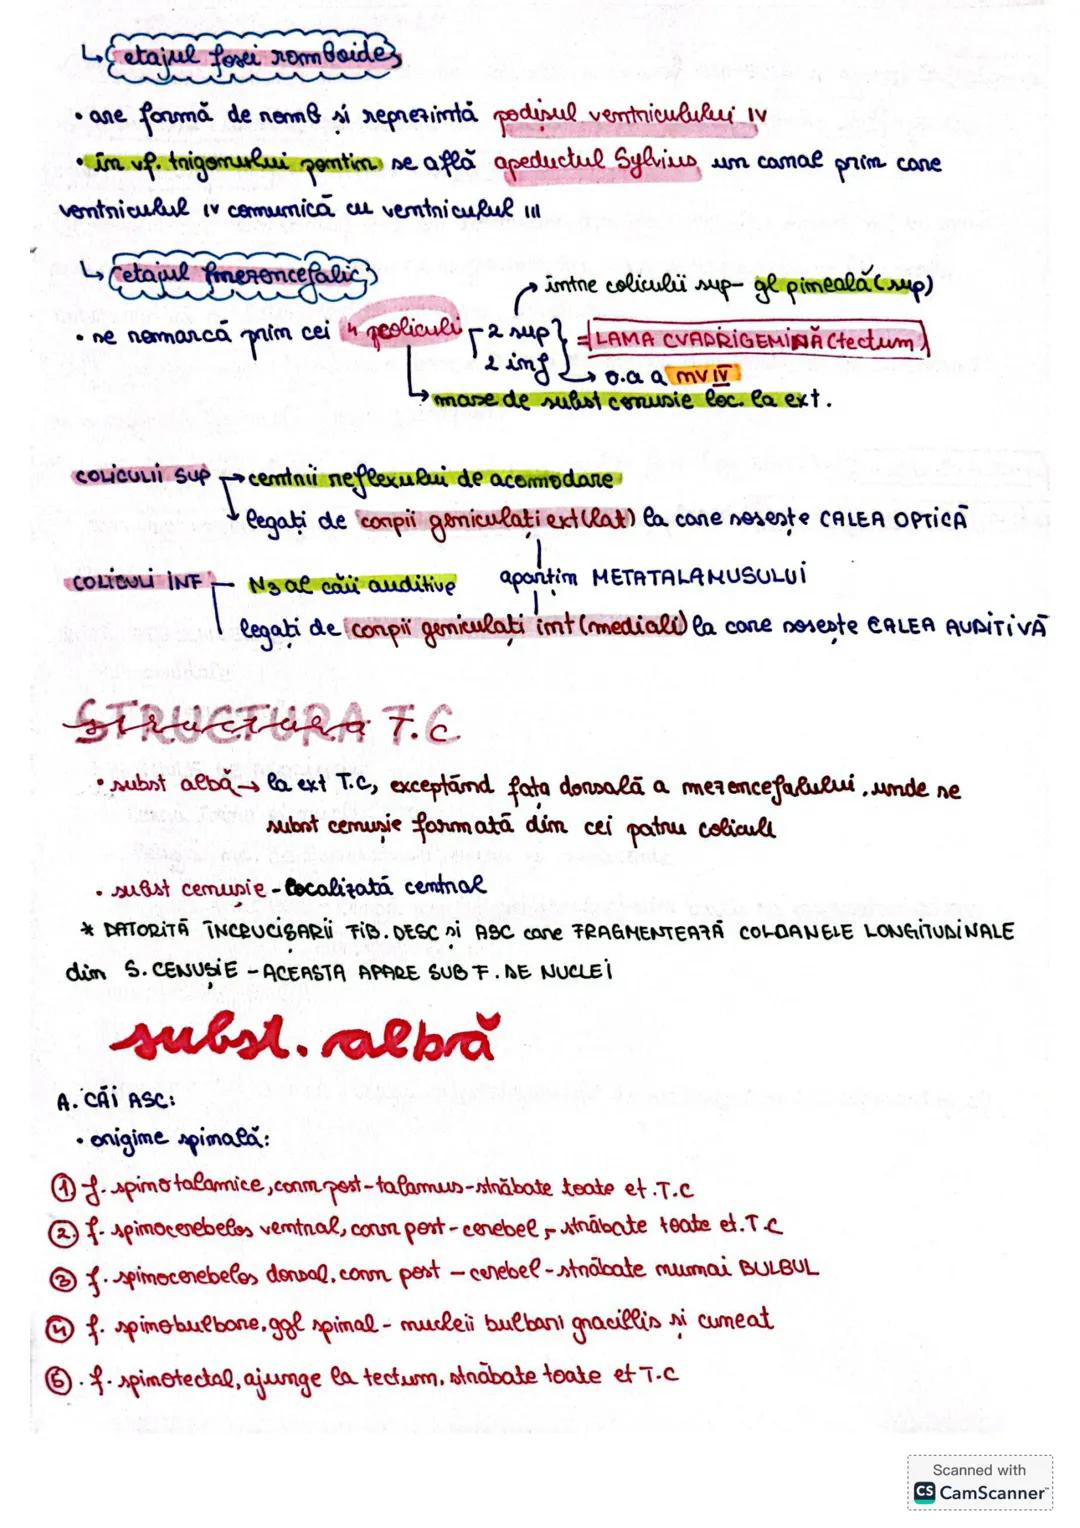 ↳ etajul fosei romboide
• are formă de romb si reprezintă podișul ventriculului IV
• în vf. trigonului pontin se află apeductul Sylvius, un canal prin care
ventriculul IV comunică cu ventriculul III
↳ etajul mezencefalic
→ intre coliculii sup- gl pineală (sup)
• se remarcă prin cei 4 coliculi - 2 sup } = LAMA CVADRIGEMINĂ (tectum)
2 inf → o.a a nv IV
→ mase de subst cenusie loc. la ext.
COLICULII SUP → centrii reflexului de acomodare
→ legați de corpii geniculați ext (lat) la care sosește CALEA OPTICĂ
aparțin METATALAMUSULUI
COLICULI INF - N3 al căii auditive
legați de corpii geniculați int (mediali) la care sosește CALEA AUDITIVĂ
STRUCTURA T.C.
• subst albă → la ext T.C, exceptând fața dorsală a mezencefalului, unde se
subst cenușie formată din cei patru coliculi
• subst cenușie - localizată central
* DATORITĂ ÎNCRUCIȘĂRII FIB. DESC si ASC care FRAGMENTEAZĂ COLOANELE LONGITUDINALE
din S. CENUȘIE - ACEASTA APARE SUB F. DE NUCLEI
subst. albă
A. CĂI ASC:
• origine spinală:
① f. spinotalamice, corn post - talamus - străbate toate et. T.C
② f. spinocerebelos ventral, corn post - cerebel, - străbate toate et. T.C
③ f. spinocerebelos dorsal, corn post - cerebel - străbate numai BULBUL
④ f. spinobulbare, ggl spinal - nucleii bulbari gracillis si cuneat
⑤ . f. spinotectal, ajunge la tectum, străbate toate et T.C
Scanned with
CS CamScanner